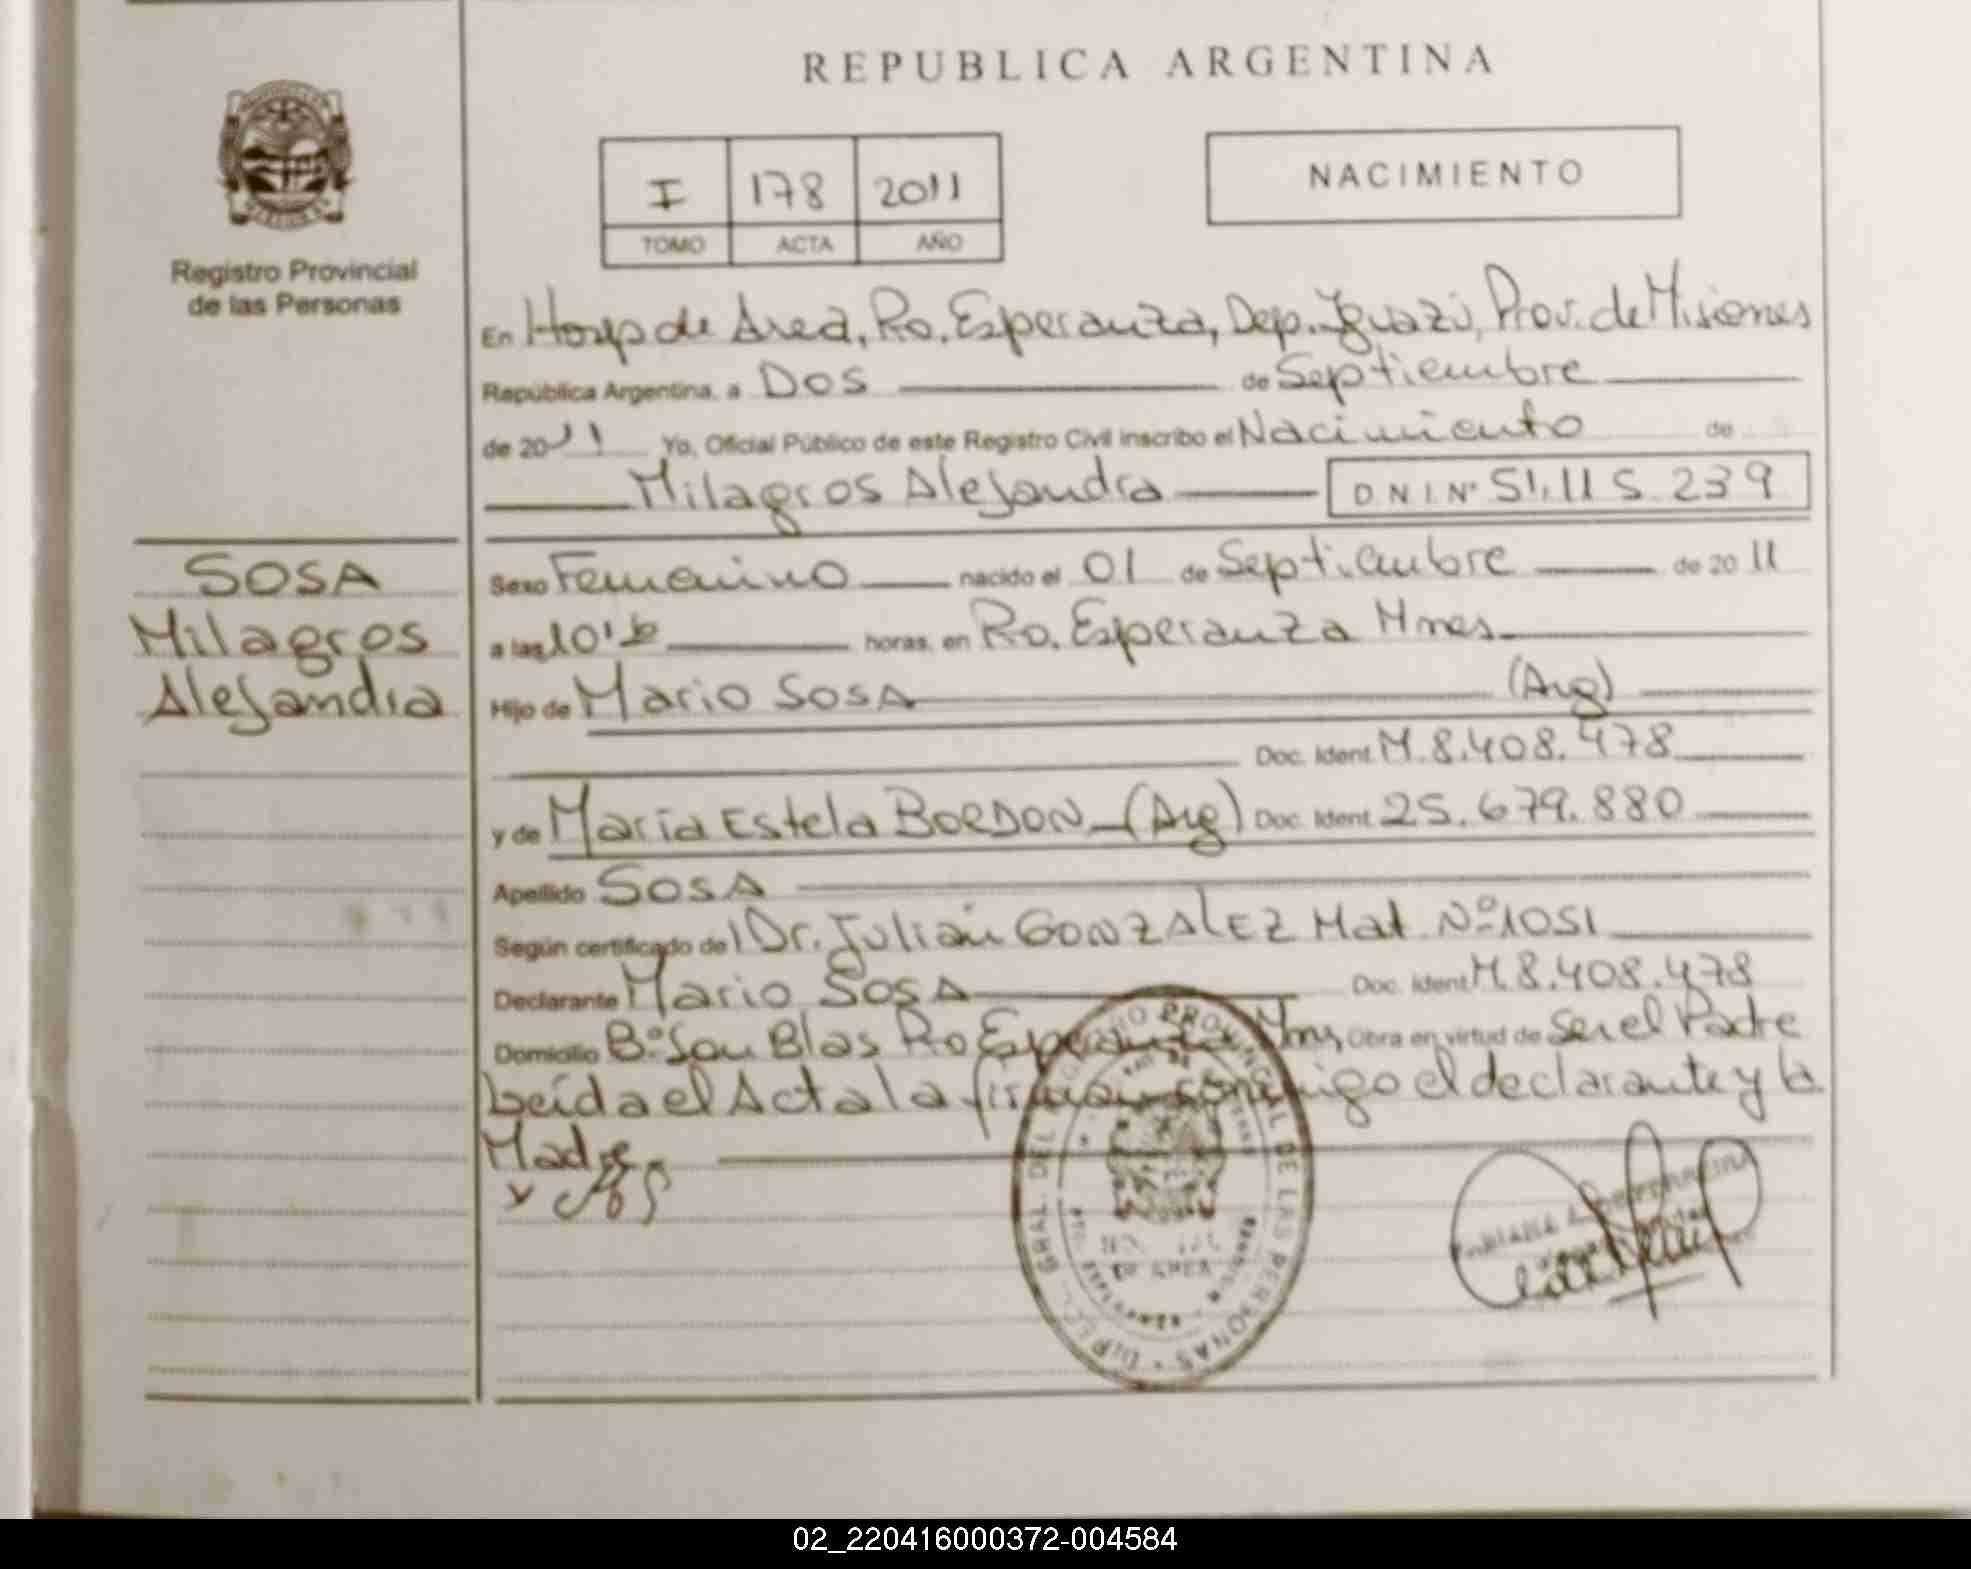 REPUBLICA ARGENTINA
I 178 2011
TOMO ACTA AÑO
NACIMIENTO
Registro Provincial
de las Personas
En Hosp de Area, Pto. Esperanza, Dep. Iguazú, Prov. de Misiones
República Argentina, a Dos de Septiembre
de 2011 Yo, Oficial Público de este Registro Civil inscribo el Nacimiento de
Milagros Alejandra D.N.I. Nº 51.115.239
SOSA
Milagros
Alejandra
Sexo Femenino nacido el 01 de Septiembre de 2011
a las horas, en Pto. Esperanza Mnes
Hijo de Mario SOSA (Arg)
Doc. Ident. M. 8.408.478
y de María Estela BORDON (Arg) Doc. Ident. 25.679.880
Apellido SOSA
Según certificado del Dr. Julián GONZALEZ Mat. Nº 1051
Declarante Mario SOSA Doc. Ident. M. 8.408.478
Domicilio Bº San Blas Pto Esperanza Mnes Obra en virtud de Ser el Padre
Leída el Acta la firman conmigo el declarante y la
Madre
DIRECC. GRAL. DEL REGISTRO PROVINCIAL DE LAS PERSONAS
02_220416000372-004584